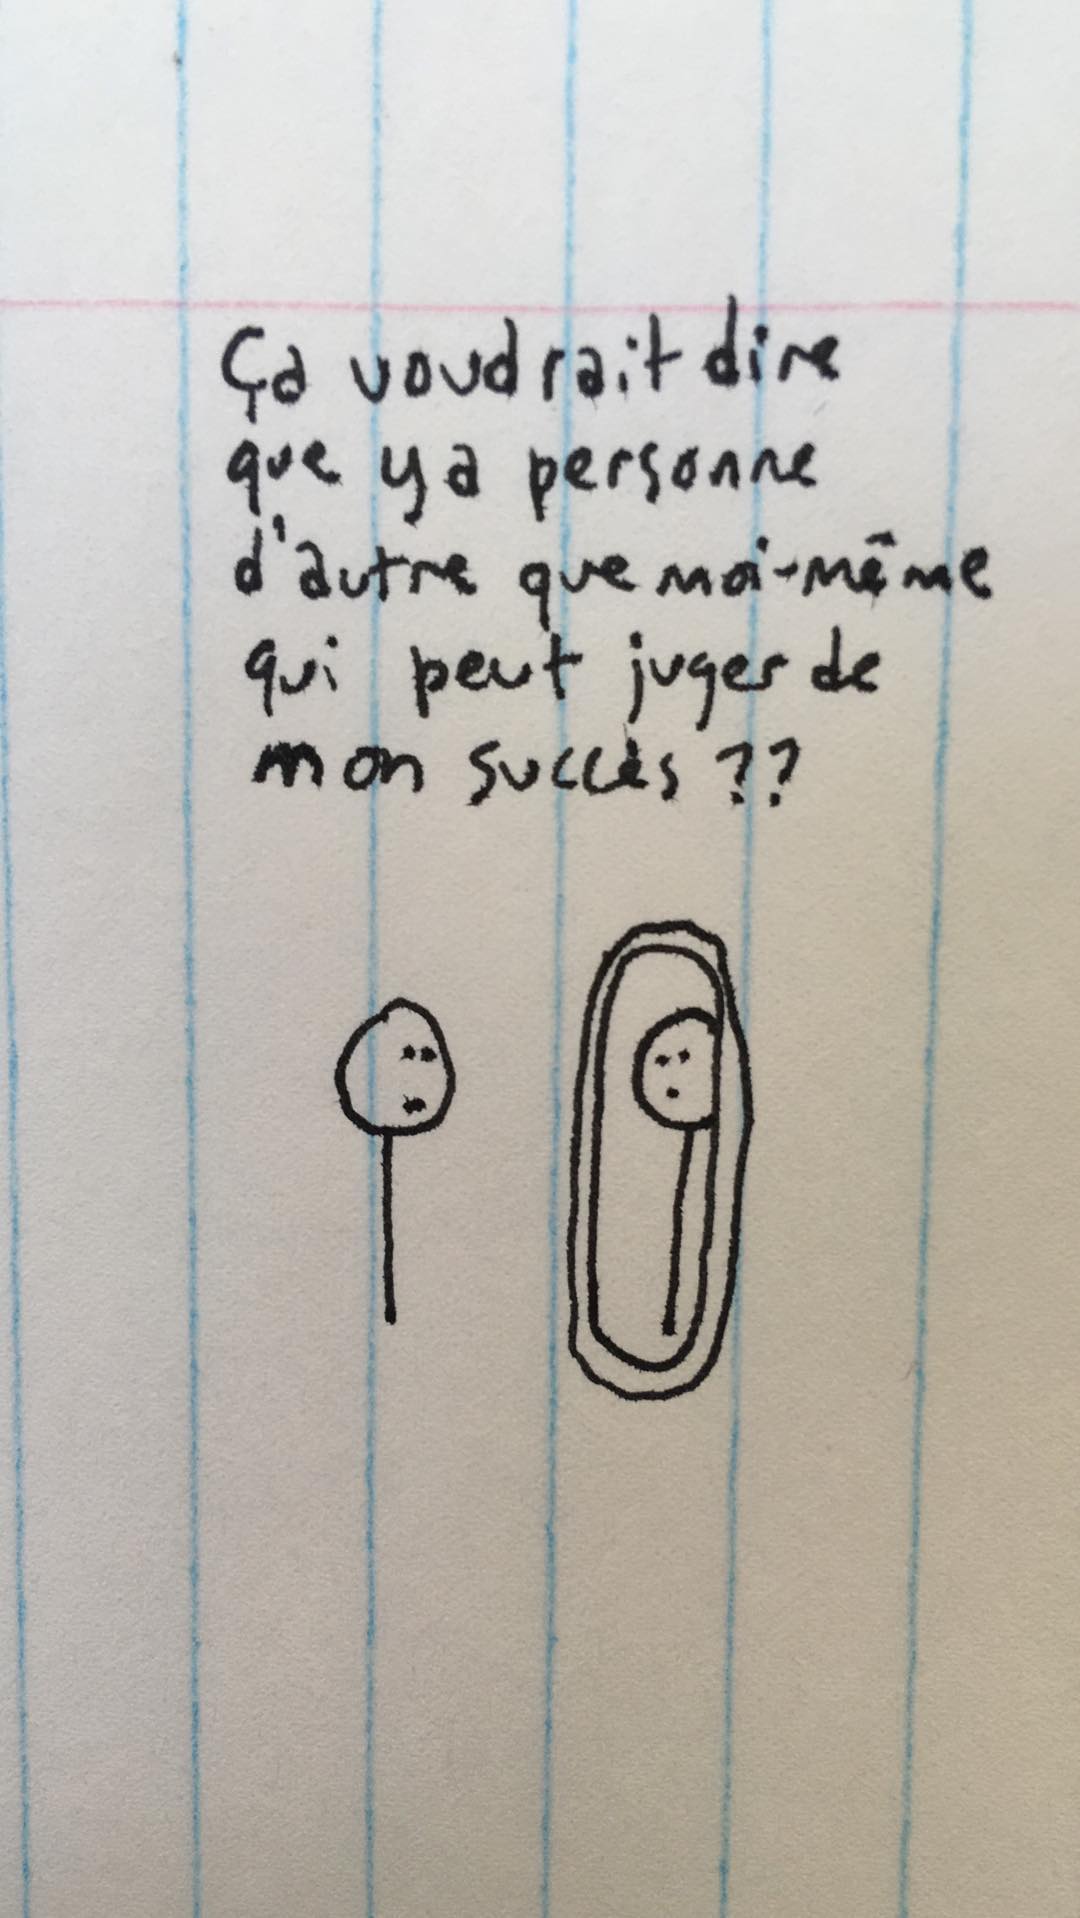 Ça voudrait dire
que ya personne
d'autre que moi-même
qui peut juger de
mon succès ??